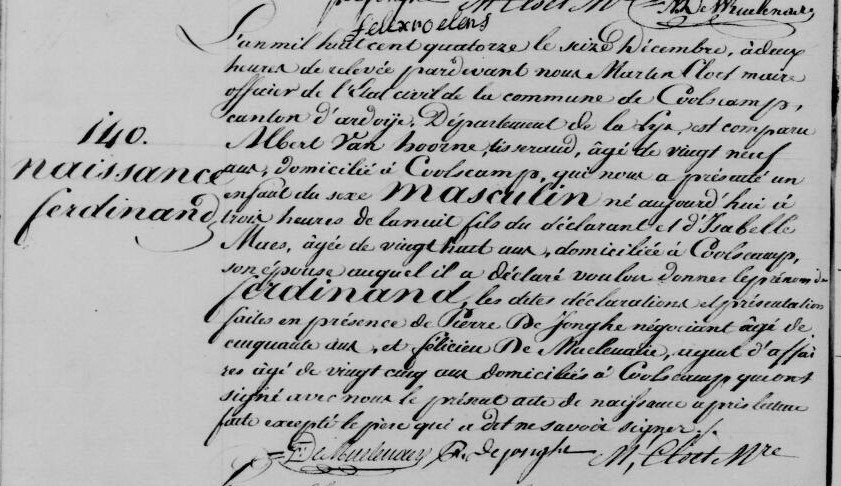 M Cloet Mre
felix roelens
L'an mil huit cent quatorze le seize Décembre, à deux
heures de relevée pardevant nous Martin Cloet maire
officier de l'Etat civil de la commune de Coolscamp,
canton d'ardoije, Département de la Lys, est comparu
140.
Albert Van hoorne, tisserand, âgé de vingt neuf
naissance
ans, domicilié à Coolscamp, qui nous a présenté un
enfant du sexe Masculin né aujourd'hui à
ferdinand
trois heures de la nuit fils du déclarant et d'Isabelle
Maes, âgée de vingt huit ans, domiciliée à Coolscamp,
son épouse auquel il a déclaré vouloir donner le prénom de
ferdinand, les dites déclarations et présentation
faites en présence de Pierre De Jonghe négociant âgé de
cinquante ans, et félicien De Muelenaere, agent d'affai
res âgé de vingt cinq ans domiciliés à Coolscamp qui ont
signé avec nous le présent acte de naissance après lecture
faite excepté le père qui a dit ne savoir signer./.
De Muelenaere P. de jonghe M, Cloet Mre